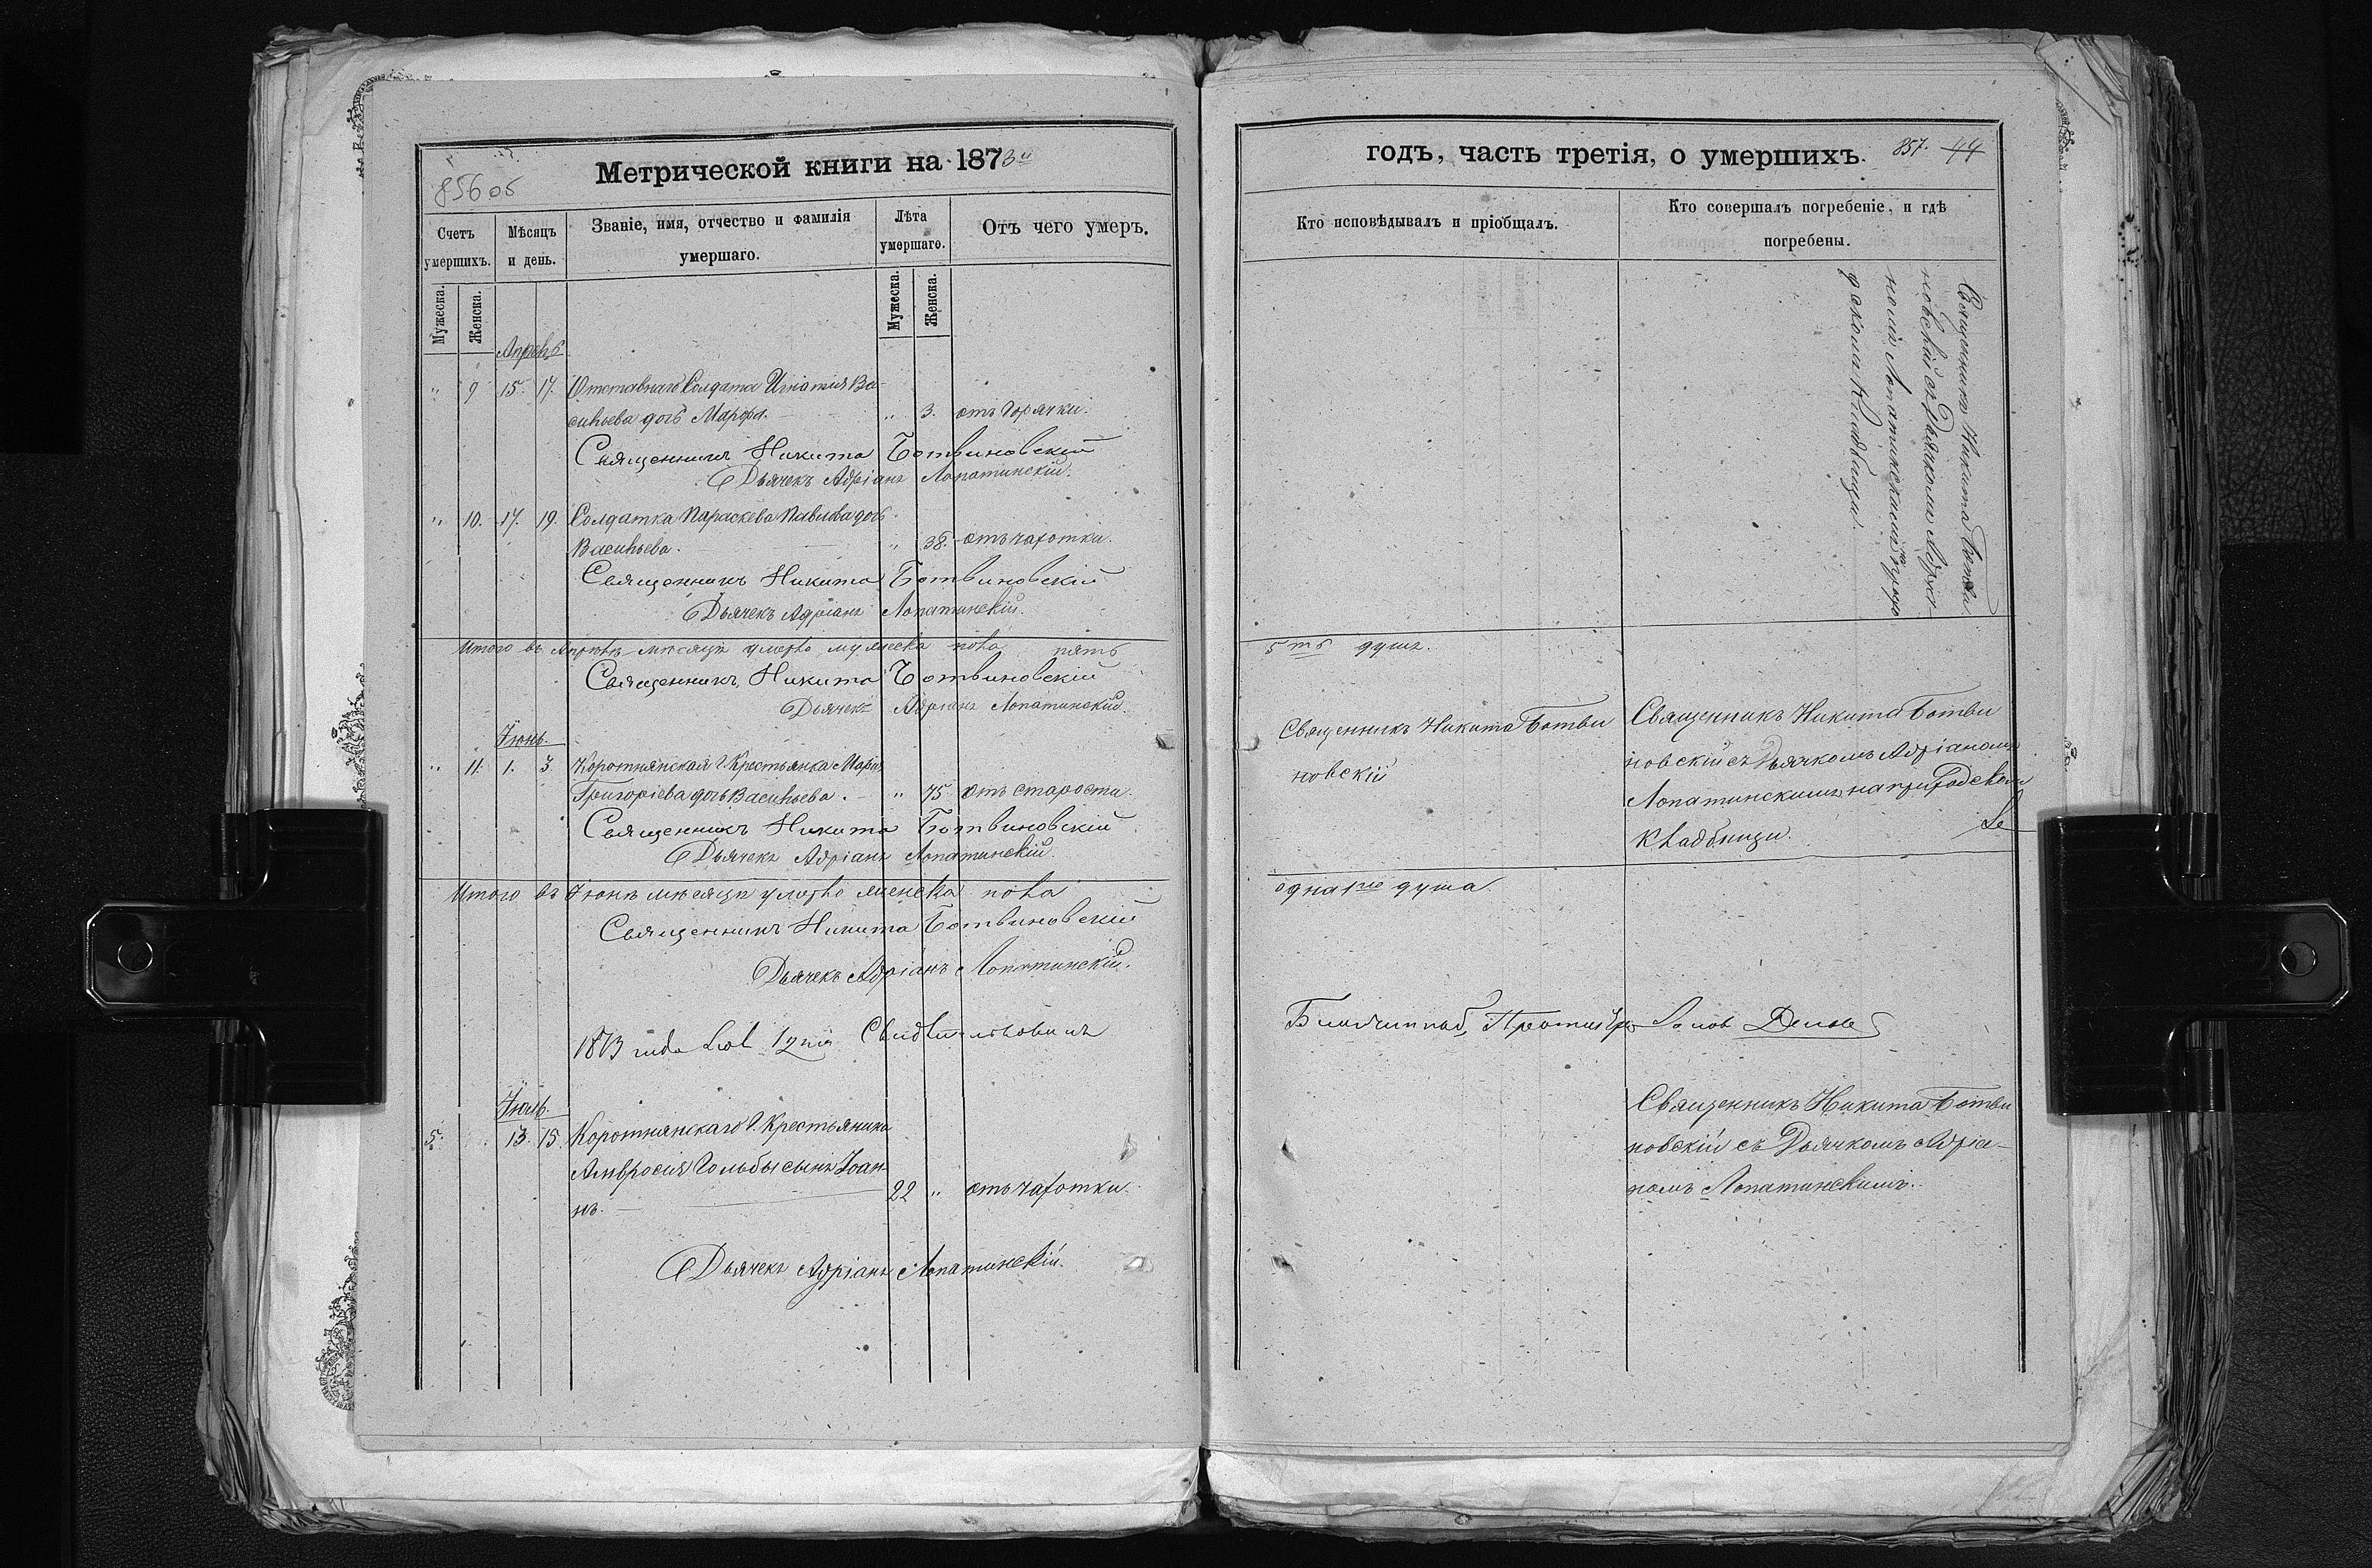 856 об
Метрической книги на 1873й
Счетъ умершихъ.
Мѣсяцъ и день.
Званіе, имя, отчество и фамилія умершаго.
Лѣта умершаго.
Отъ чего умеръ.
Мужеска.
Женска.
Мужеска.
Женска.
Апрель
" 9 15. 17. Отставнаго Солдата Игнатия Ва-
сильева дочь Марфа. " 3. отъ горячки.
Священникъ Никита Ботвиновскій
Дьячекъ Адріанъ Лопатинскій.
" 10. 17. 19. Солдатка Параскева Павлова дочь
Васильева. " 38. отъ чахотки.
Священникъ Никита Ботвиновскій
Дьячекъ Адріанъ Лопатинскій.
Итого въ Апрѣлѣ мѣсяцѣ умерло мужеска пола пять
Священникъ Никита Ботвиновскій
Дьячекъ Адріанъ Лопатинскій.
Іюнь.
" 11. 1. 3. Коротнянская Крестьянка Марія
Григоріева дочь Васильева. " 75 отъ старости.
Священникъ Никита Ботвиновскій
Дьячекъ Адріанъ Лопатинскій.
Итого въ Іюнѣ мѣсяцѣ умерло женска пола
Священникъ Никита Ботвиновскій
Дьячекъ Адріанъ Лопатинскій.
1873 года
Іюль.
5. 13. 15. Коротнянскаго Крестьянина
Амвросия Гольбы сынъ Іоан-
нъ. 22 " отъ чахотки.
Дьячекъ Адріанъ Лопатинскій.
годъ, часть третія, о умершихъ. 857. 44
Кто исповѣдывалъ и пріобщалъ.
Кто совершалъ погребеніе, и гдѣ
погребены.
Священникъ Никита Ботви
новскій съ Дьячкомъ Адріа-
номъ Лопатинскимъ на приго
дском кладбищи.
5ть душъ.
Священникъ Никита Ботви
новскій
Священникъ Никита Ботви
новскій съ Дьячкомъ Адріаномъ
Лопатинскимъ на
кладбищи.
одна душа.
Священникъ Никита Ботви
новскій съ Дьячкомъ Адріа-
номъ Лопатинскимъ.